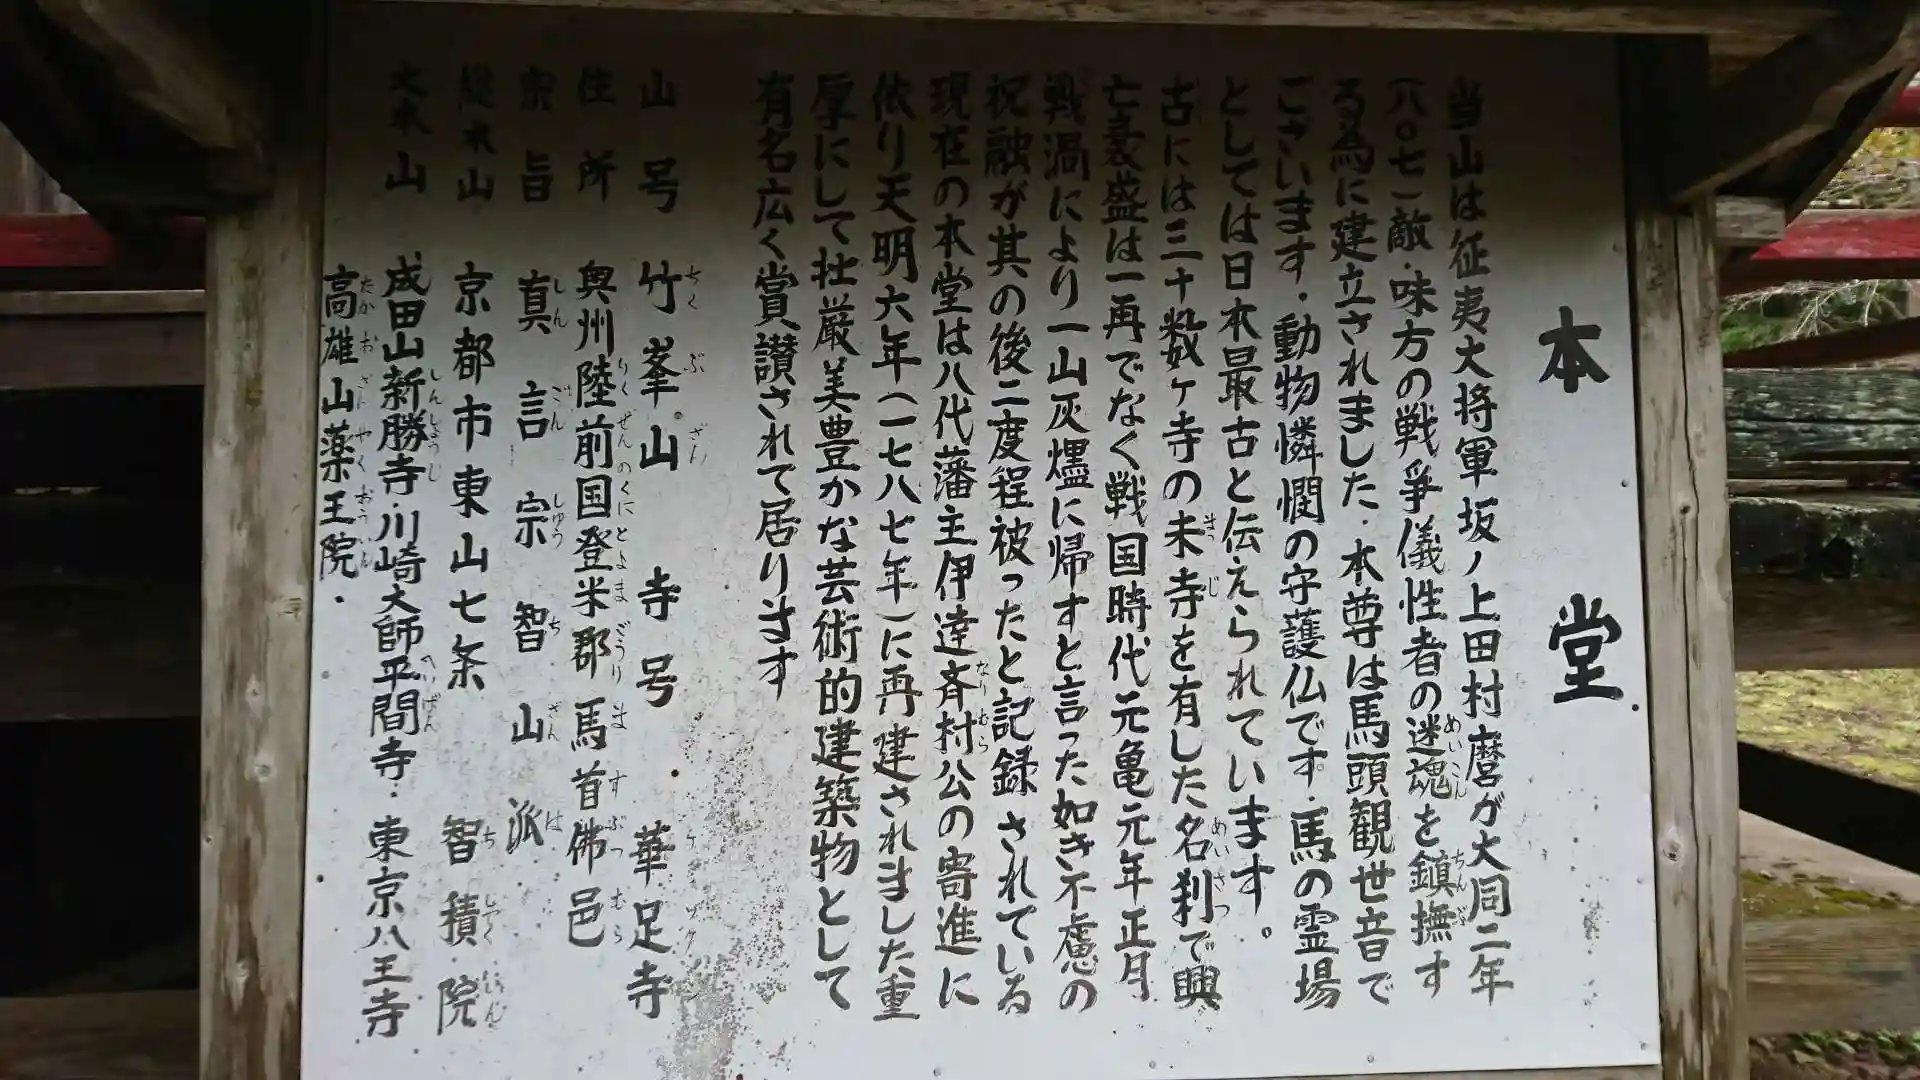 本堂
当山は征夷大将軍坂ノ上田村麿が大同二年
(八〇七)敵・味方の戦争儀性者の迷魂を鎮撫す
る為に建立されました・本尊は馬頭観世音で
ございます・動物憐憫の守護仏です・馬の霊場
としては日本最古と伝えられています。
古には三十数ヶ寺の末寺を有した名刹で興
亡衰盛は一再でなく戦国時代元亀元年正月
戦渦により一山灰燼に帰すと言った如き不慮の
祝融が其の後二度程被ったと記録されている
現在の本堂は八代藩主伊達斉村公の寄進に
依り天明六年(一七八七年)に再建されました重
厚にして壮厳美豊かな芸術的建築物として
有名広く賞讃されて居ります
山号 竹峯山 寺号 華足寺
住所 奥州陸前国登米郡馬首佛邑
宗旨 真言宗智山派
総本山 京都市東山七条 智積院
大本山 成田山新勝寺・川崎大師平間寺・東京八王寺
高雄山薬王院・